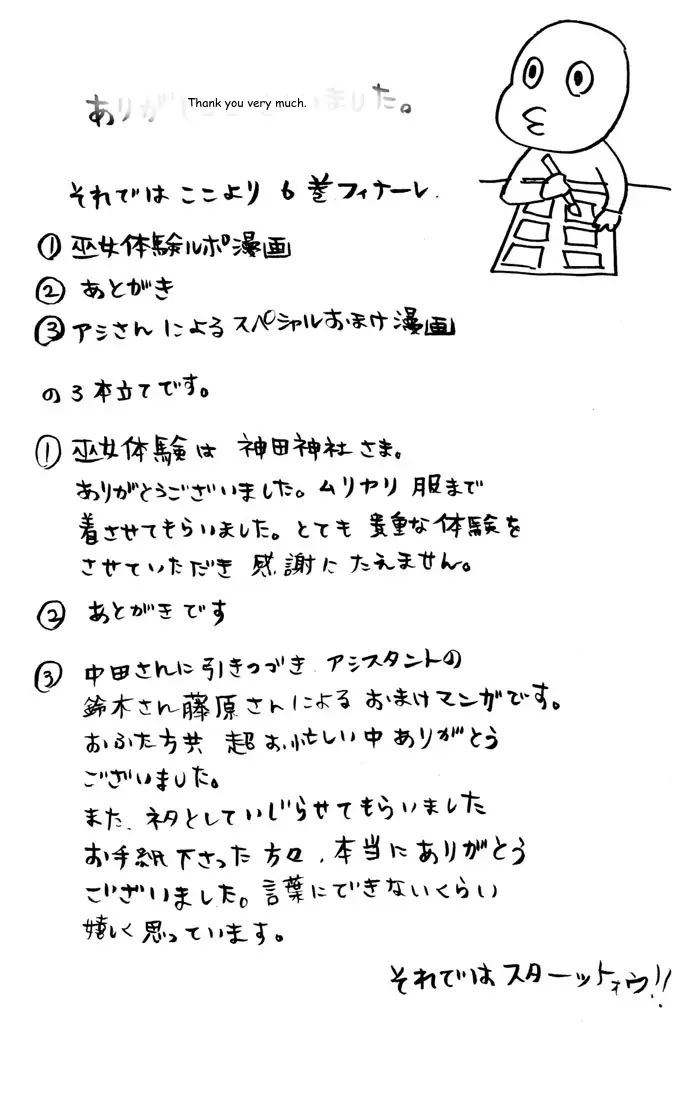 ありが Thank you very much. いました。
それでは ここより 6巻フィナーレ.
① 巫女体験ルポ漫画
② あとがき
③ アシさん による スペシャルおまけ漫画
の3本立てです。
① 巫女体験は 神田神社さま。
ありがとうございました。ムリヤリ 服まで
着させてもらいました。とても 貴重な体験を
させていただき 感謝に たえません。
② あとがきです
③ 中田さんに引きつづき.アシスタントの
鈴木さん藤原さんによる おまけマンガです。
おふた方共 超お忙しい中 ありがとう
ございました。
また、ネタとしていじらせてもらいました
お手紙下さった方々、本当にありがとう
ございました。言葉にできないくらい
嬉しく思っています。
それではスターットォウ!!